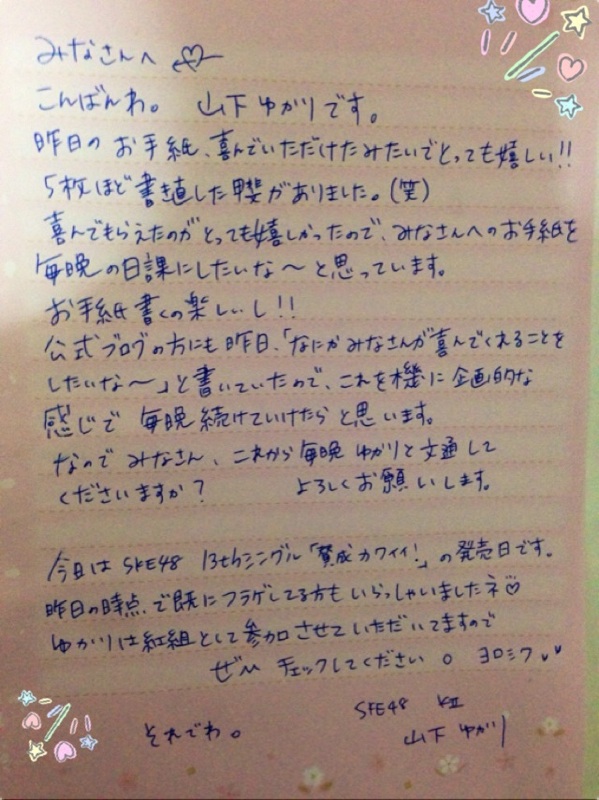 みなさんへ
こんばんわ。 山下ゆかりです。
昨日のお手紙、喜んでいただけたみたいでとっても嬉しい!!
5枚ほど書き直した甲斐がありました。(笑)
喜んでもらえたのがとっても嬉しかったので、みなさんへのお手紙を
毎晩の日課にしたいな〜と思っています。
お手紙書くの楽しいし!!
公式ブログの方にも昨日、「なにかみなさんが喜んでくれることを
したいな〜」と書いていたので、これを機に企画的な
感じで毎晩続けていけたらと思います。
なのでみなさん、これから毎晩ゆかりと文通して
くださいますか? よろしくお願いします。
今日はSKE48 13thシングル「賛成カワイイ!」の発売日です。
昨日の時点で既にフラゲしてる方もいらっしゃいましたネ♡
ゆかりは紅組として参加させていただいてますので
ぜひチェックしてください。 ヨロシク♥♥
SKE48 KII
それでわ。 山下ゆかり